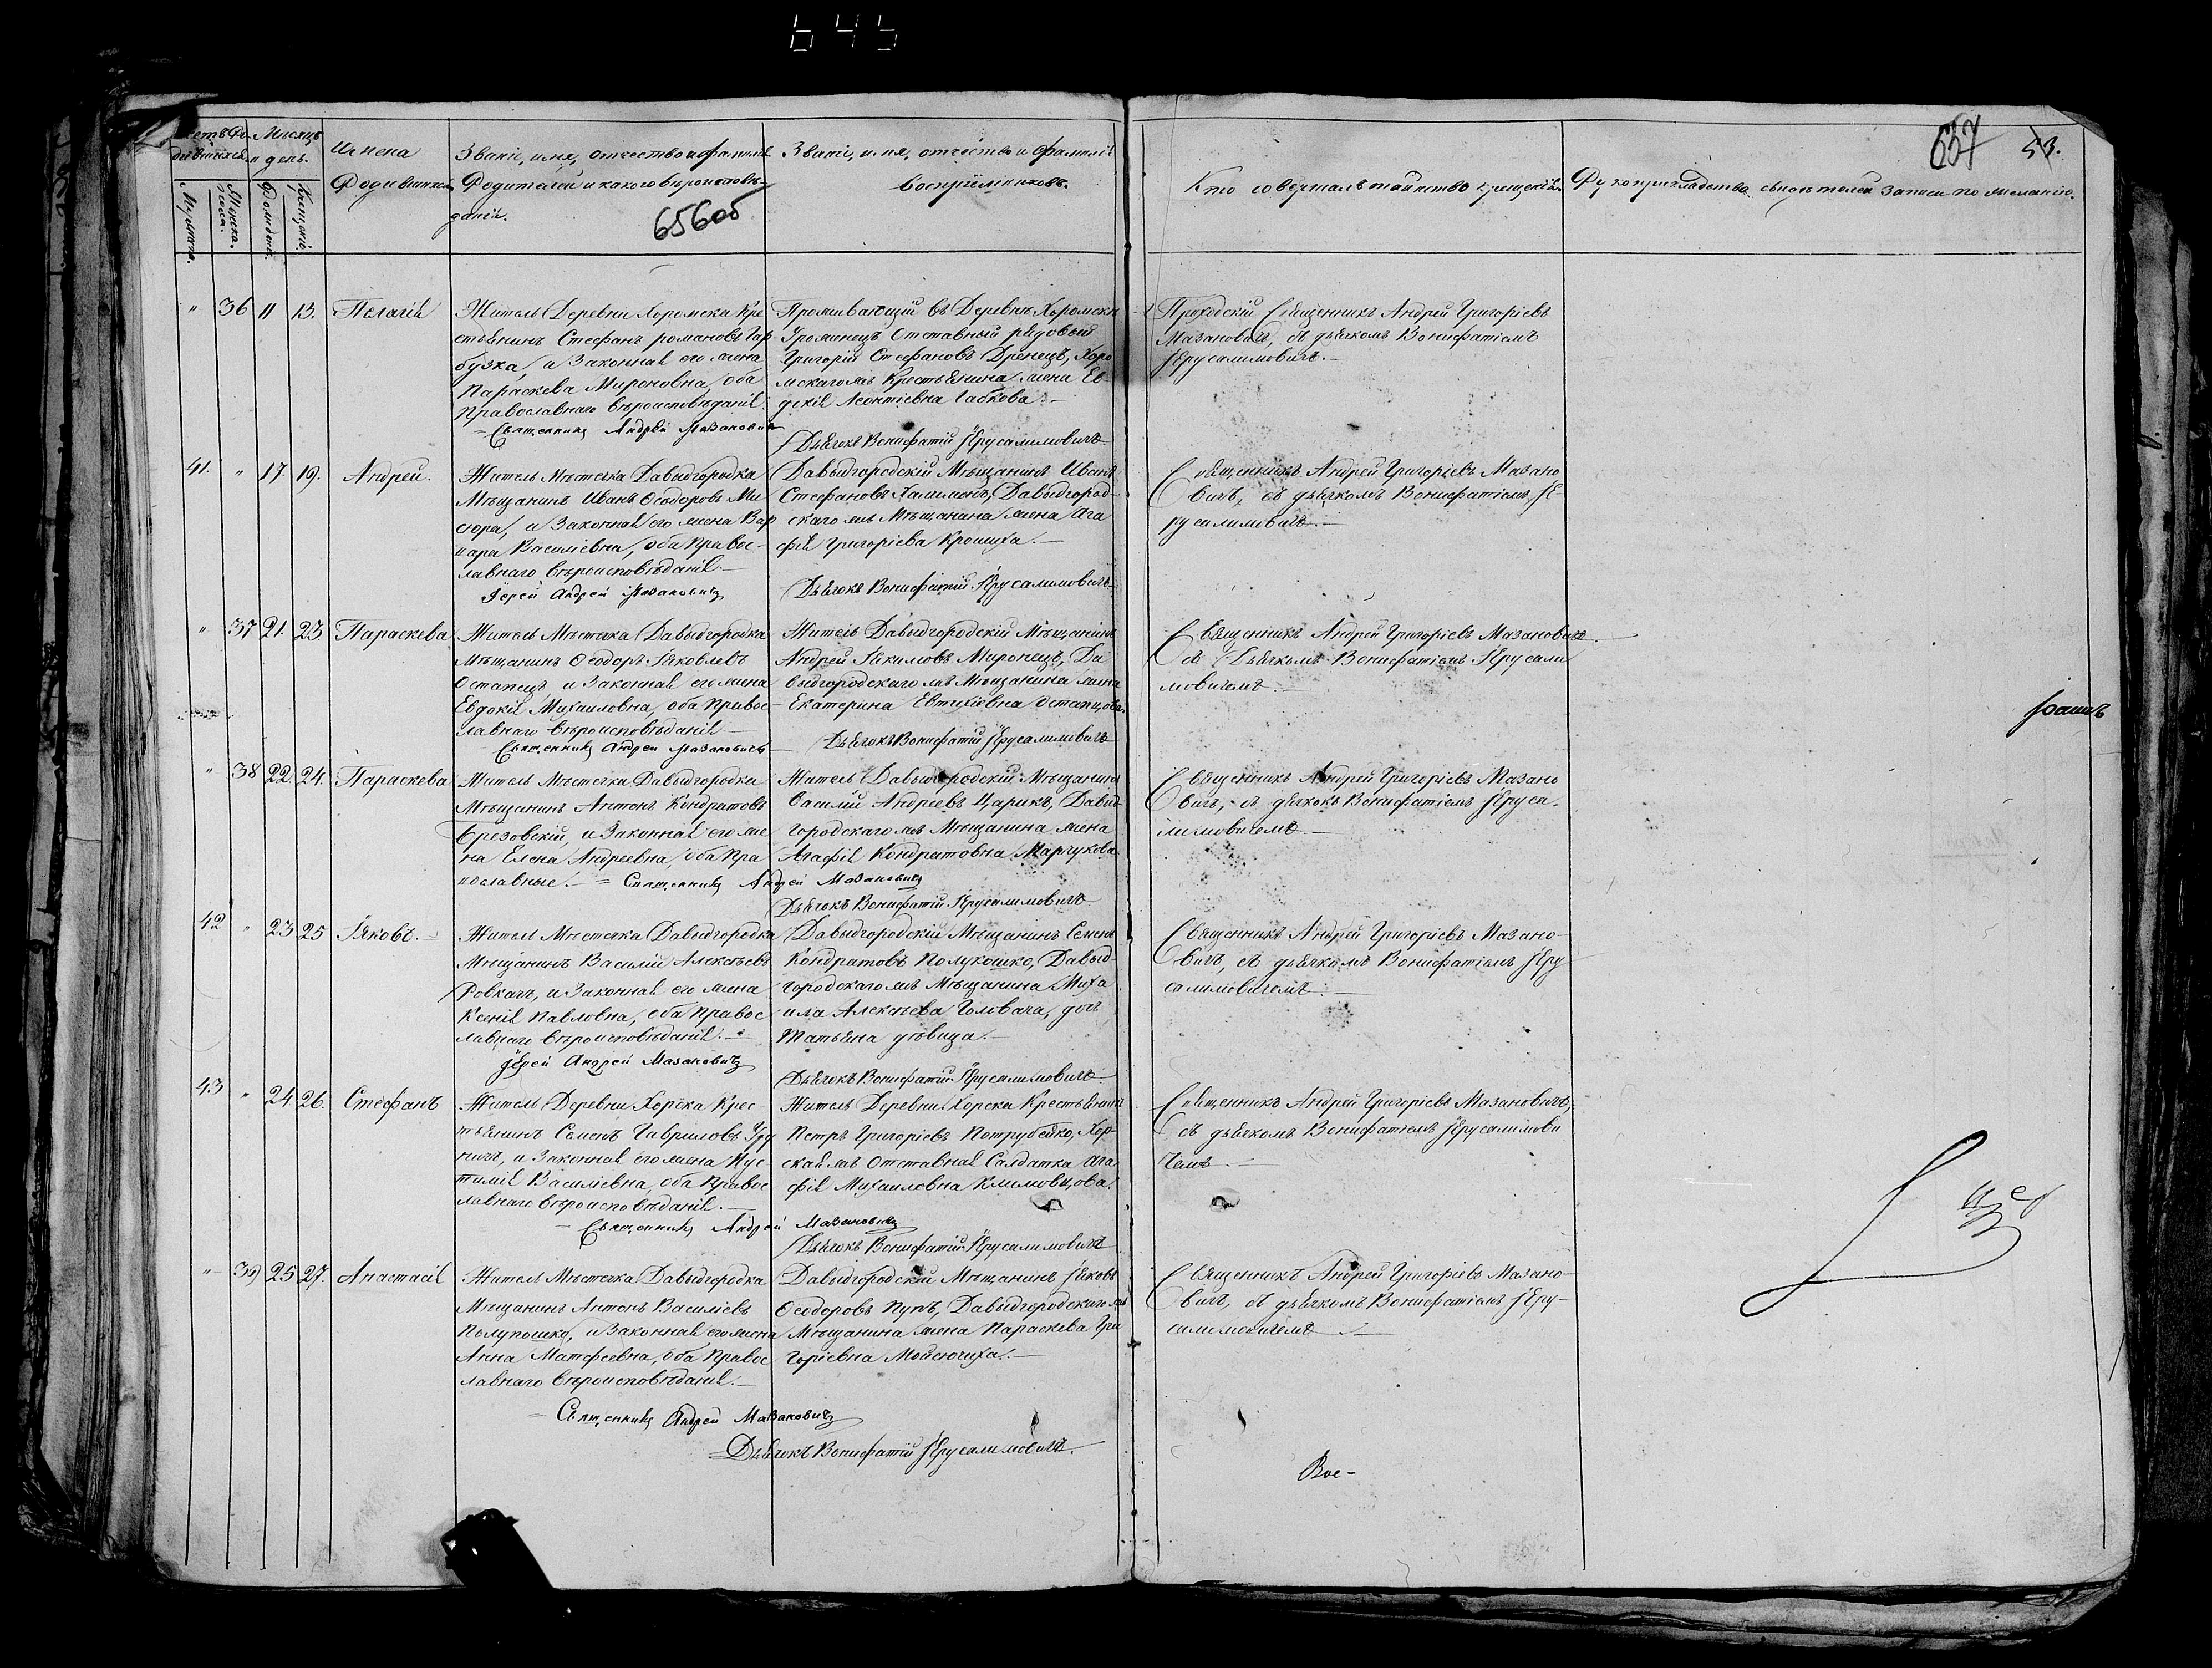 645
657 53.
Счетъ Ро-
дившихся
Мѣсяцъ
и день.
Имена
Родившихся
Званіе, имя, отчество и фамилія
Родителей и какого вѣроисповѣ-
данія.
65605
Званіе, имя, отчество и фамилія
Воспріемниковъ.
Кто совершалъ таинство крещенія.
Рукоприкладство свидѣтелей записи по желанію.
Мужеска.
Женска.
Рожденія.
Крещенія.
" 36 11 13. Пелагія
Житель Деревни Хоромска Кре
стьянинъ Стефанъ романовъ Гар
бузка, и Законная его жена
Параскева Мироновна, оба
Православнаго вѣроисповѣданія.
Священникъ Андрей Мазановичъ
Проживающій въ Деревнѣ Хоромскѣ
Уроженецъ Отставный рядовый
Григорій Стефановъ Дренецъ, Хоро
мскаго жъ Крестьянина жена Ев-
докія Леонтіевна Габкова.
Дьячокъ Вонифатій Іерусалимовичъ
Приходскій Священникъ Андрей Григоріевъ
Мазановичъ, съ дьячкомъ Вонифатіемъ
Іерусалимовичъ.
41. " 17. 19. Андрей.
Житель Мѣстечка Давыдгородка
Мѣщанинъ Иванъ Ѳеодоровъ Ми
сюра, и Законная его жена Вар
вара Василіевна, оба Правос-
лавнаго вѣроисповѣданія.
Іерей Андрей Мазановичъ
Давыдгородскій Мѣщанинъ Иванъ
Стефановъ Халимонъ, Давыдгород-
скаго жъ Мѣщанина жена Ага
фія Григоріева Кромиха.
Дьячокъ Вонифатій Іерусалимовичъ
Священникъ Андрей Григоріевъ Мазано
вичъ, съ дьячкомъ Вонифатіемъ Іе-
русалимовичъ.
" 37 21. 23. Параскева
Житель Мѣстечка Давыдгородка
Мѣщанинъ Ѳеодоръ Іяковлевъ
Остапецъ, и Законная его жена
Евдокія Михаиловна, оба Правос-
лавнаго вѣроисповѣданія
Священникъ Андрей Мазановичъ
Житель Давыдгородскій Мѣщанинъ
Андрей Іякимовъ Миронецъ, Да
выдгородскаго жъ Мѣщанина жена
Екатерина Евтихіевна Остапцова.
Дьячокъ Вонифатій Іерусалимовичъ
Священникъ Андрей Григоріевъ Мазановичъ
съ Дьячкомъ Вонифатіемъ Іерусали
мовичемъ.
" 38 22. 24. Параскева
Житель Мѣстечка Давыдгородка
Мѣщанинъ Антонъ Кондратовъ
Брезовскій, и Законная его же
на Елена Андреевна, оба Пра
вославные. Священникъ Андрей Мазановичъ
Житель Давыдгородскій Мѣщанинъ
Василій Андреевъ Царикъ, Давыд-
городскаго жъ Мѣщанина жена
Агафія Кондратовна Марчукова
Дьячокъ Вонифатій Іерусалимовичъ
Священникъ Андрей Григоріевъ Мазано
вичъ, съ дьячкомъ Вонифатіемъ Іеруса-
лимовичемъ.
42 " 23 25 Іяковъ.
Житель Мѣстечка Давыдгородка
Мѣщанинъ Василій Алексѣевъ
Ровкачъ, и Законная его жена
Ксенія Павловна, оба Правос
лавнаго вѣроисповѣданія.
Іерей Андрей Мазановичъ
Давыдгородскій Мѣщанинъ Семенъ
Кондратовъ Полукошко, Давыд-
городскаго жъ Мѣщанина Миха
ила Алексѣева Головача, дочь
Татьяна дѣвица.
Дьячокъ Вонифатій Іерусалимовичъ
Священникъ Андрей Григоріевъ Мазано-
вичъ, съ дьячкомъ Вонифатіемъ Іеру
салимовичемъ.
43 " 24 26. Стефанъ
Житель Деревни Хорска Крес-
тьянинъ Семенъ Гавриловъ
и Законная его жена Иус
тинія Василіевна, оба Правос
лавнаго вѣроисповѣданія.
Священникъ Андрей Мазановичъ
Житель Деревни Хорска Крестьянинъ
Петръ Григоріевъ Потрубейко, Хор-
ская жъ Отставная Салдатка Ага
фія Михаиловна Климовцова.
Дьячокъ Вонифатій Іерусалимовичъ
Священникъ Андрей Григоріевъ Мазановичъ,
съ дьячкомъ Вонифатіемъ Іерусалимови
чемъ.
" 39 25 27. Анастасія
Житель Мѣстечка Давыдгородка
Мѣщанинъ Антонъ Василіевъ
Полукошко, и Законная его жена
Анна Матфеевна, оба Правос
лавнаго вѣроисповѣданія.
Священникъ Андрей Мазановичъ
Давыдгородскій Мѣщанинъ Іяковъ
Ѳеодоровъ Пупъ, Давыдгородскаго жъ
Мѣщанина жена Параскева Гри
горіевна Мойсючиха.
Дьячокъ Вонифатій Іерусалимовичъ.
Священникъ Андрей Григоріевъ Мазано-
вичъ, съ дьячкомъ Вонифатіемъ Іеру-
салимовичемъ
Вос-